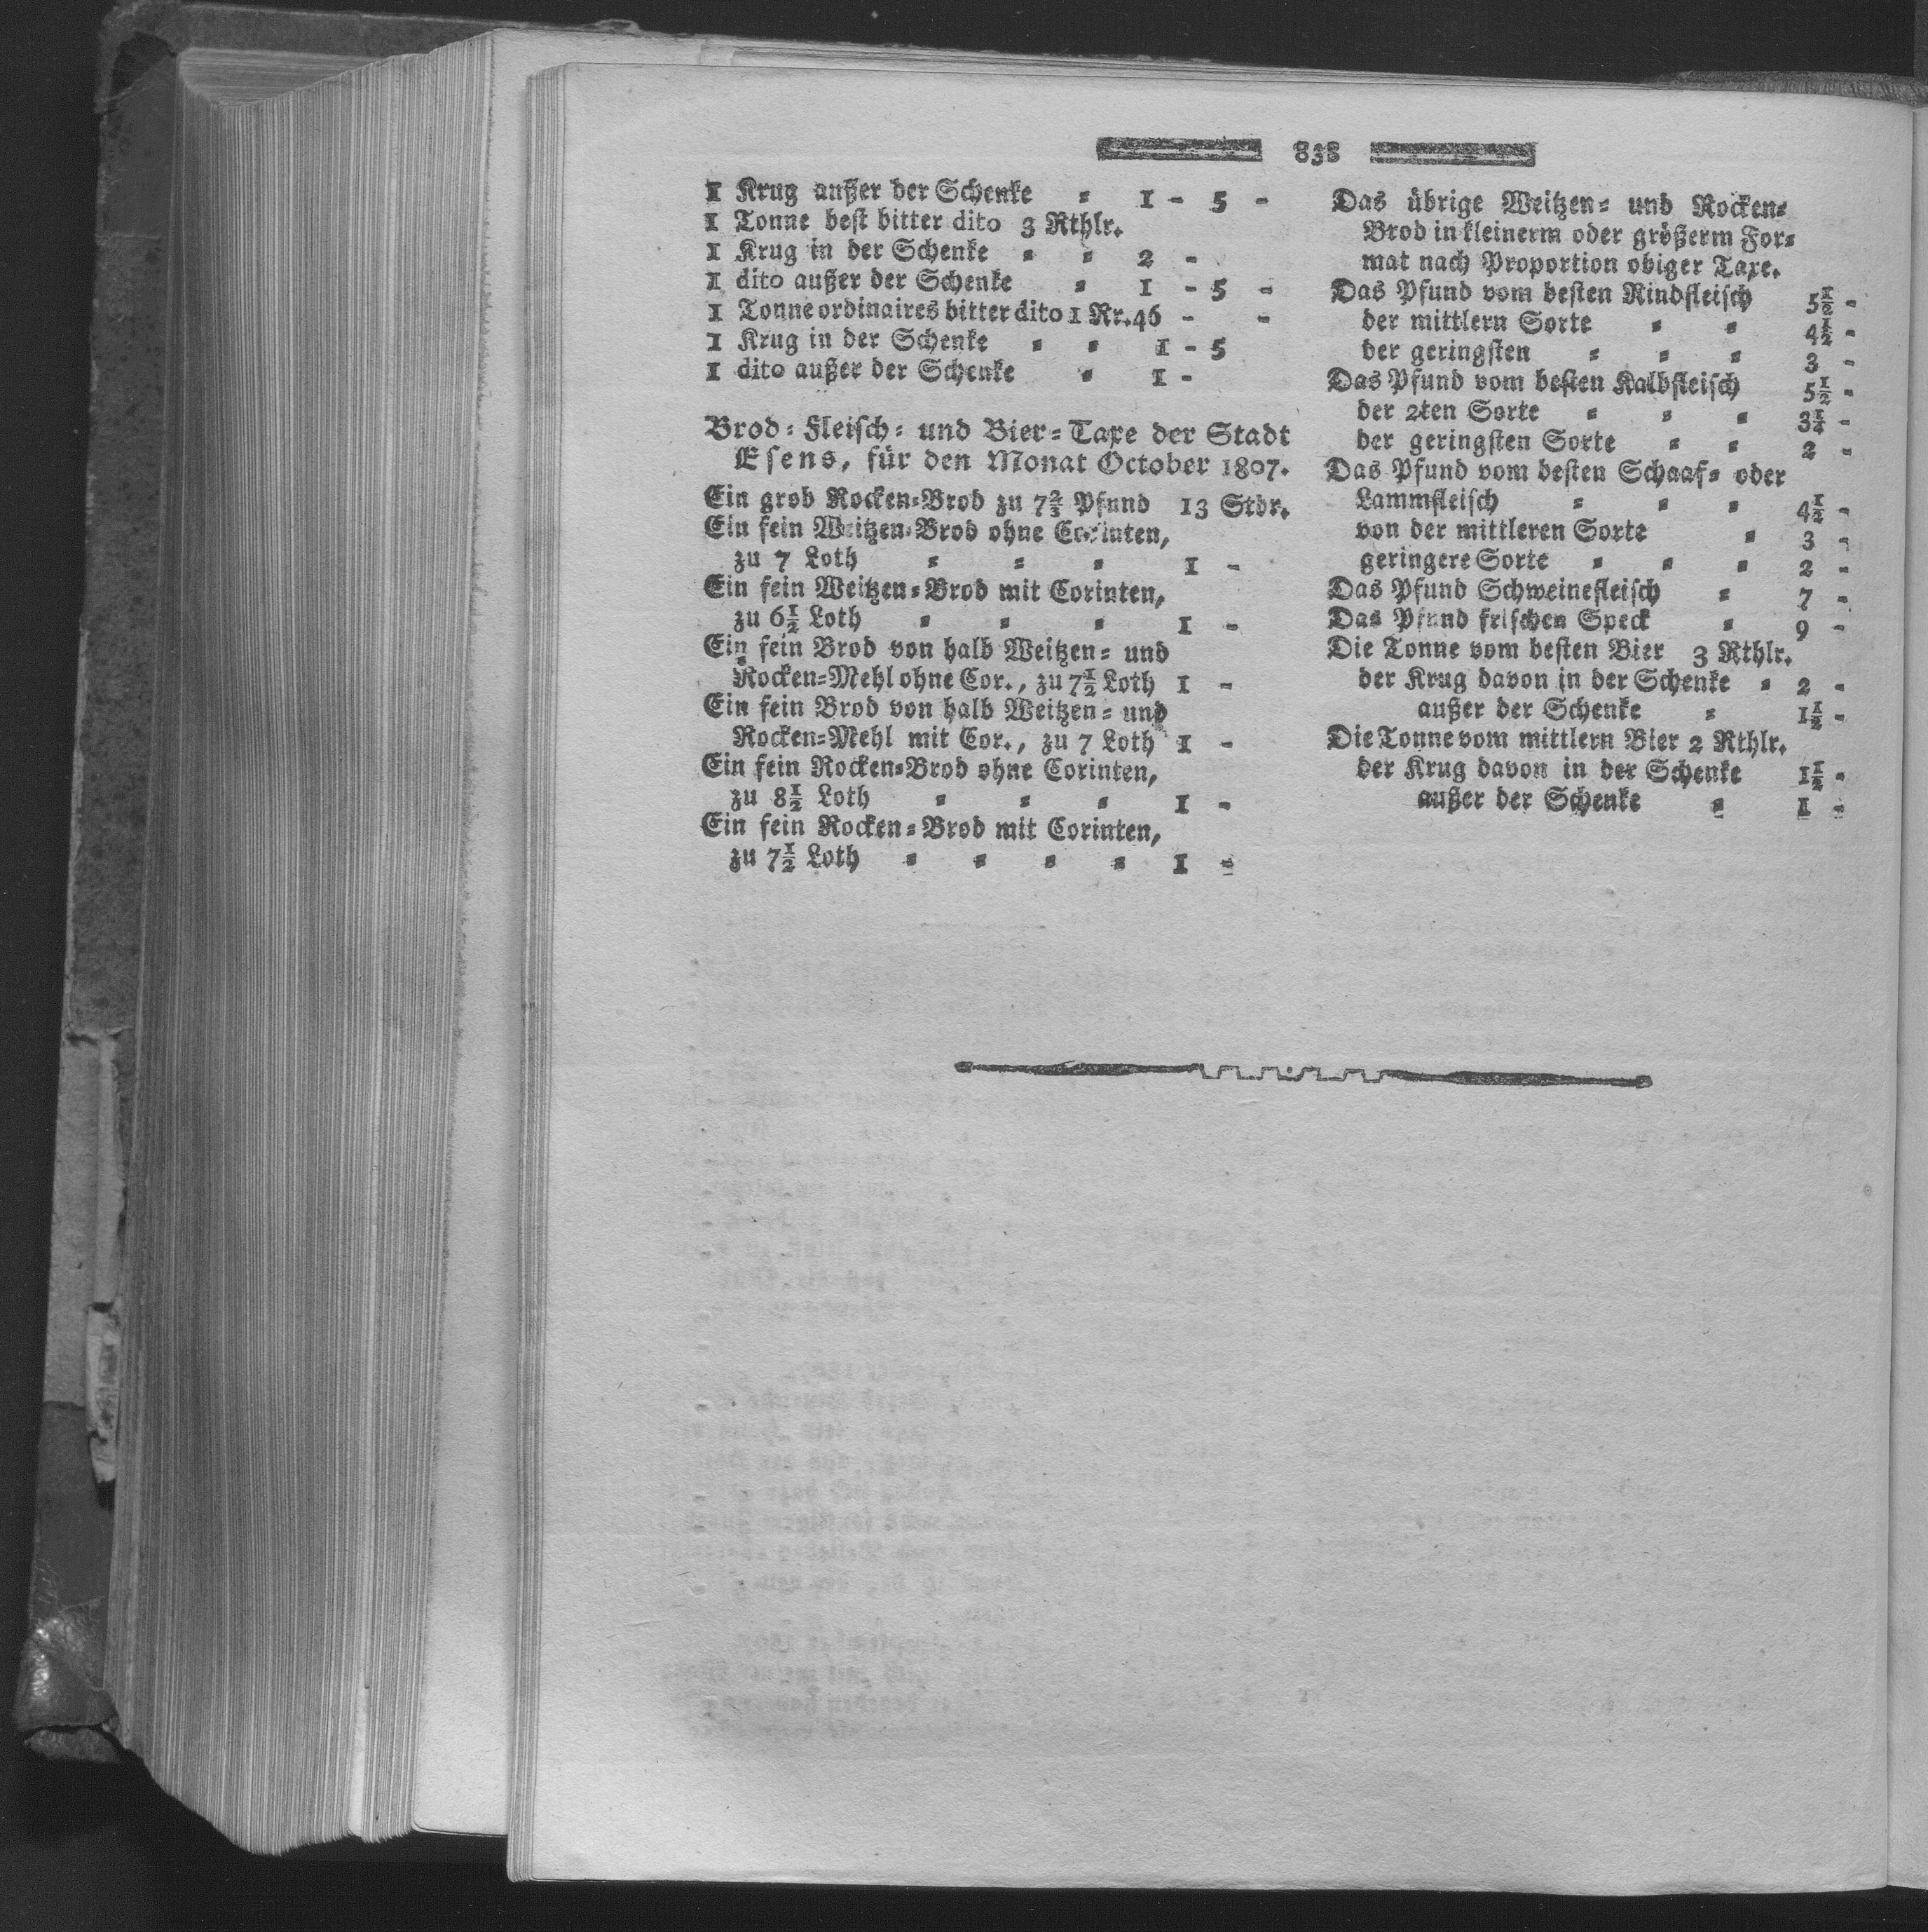 838
1 Krug außer der Schenke = 1 - 5 -
1 Tonne best bitter dito 3 Rthlr.
1 Krug in der Schenke = = 2 -
1 dito außer der Schenke = 1 - 5 -
1 Tonne ordinaires bitter dito 1 Rr. 46 - -
1 Krug in der Schenke = = 1 - 5
1 dito außer der Schenke = 1 -
Brod= Fleisch= und Bier=Taxe der Stadt
Esens, für den Monat October 1807.
Ein grob Rocken=Brod zu 7⅔ Pfund 13 Stbr.
Ein fein Weitzen=Brod ohne Corinten,
zu 7 Loth = = = 1 -
Ein fein Weitzen=Brod mit Corinten,
zu 6½ Loth = = = 1 -
Ein fein Brod von halb Weitzen= und
Rocken=Mehl ohne Cor., zu 7½ Loth 1 -
Ein fein Brod von halb Weitzen= und
Rocken=Mehl mit Cor., zu 7 Loth 1 -
Ein fein Rocken=Brod ohne Corinten,
zu 8½ Loth = = = 1 -
Ein fein Rocken=Brod mit Corinten,
zu 7½ Loth = = = = 1 -
Das übrige Weitzen= und Rocken=
Brod in kleinerm oder größerm For=
mat nach Proportion obiger Taxe.
Das Pfund vom besten Rindfleisch 5½ -
der mittlern Sorte = = 4½ -
der geringsten = = = 3 -
Das Pfund vom besten Kalbfleisch 5½ -
der 2ten Sorte = = = 3¼ -
der geringsten Sorte = = 2 -
Das Pfund vom besten Schaaf= oder
Lammfleisch = = = 4½ -
von der mittleren Sorte = 3 -
geringere Sorte = = = 2 -
Das Pfund Schweinefleisch = 7 -
Das Pfund frischen Speck = 9 -
Die Tonne vom besten Bier 3 Rthlr.
der Krug davon in der Schenke = 2 -
außer der Schenke = 1½ -
Die Tonne vom mittlern Bier 2 Rthlr.
der Krug davon in der Schenke 1½ -
außer der Schenke = 1 -